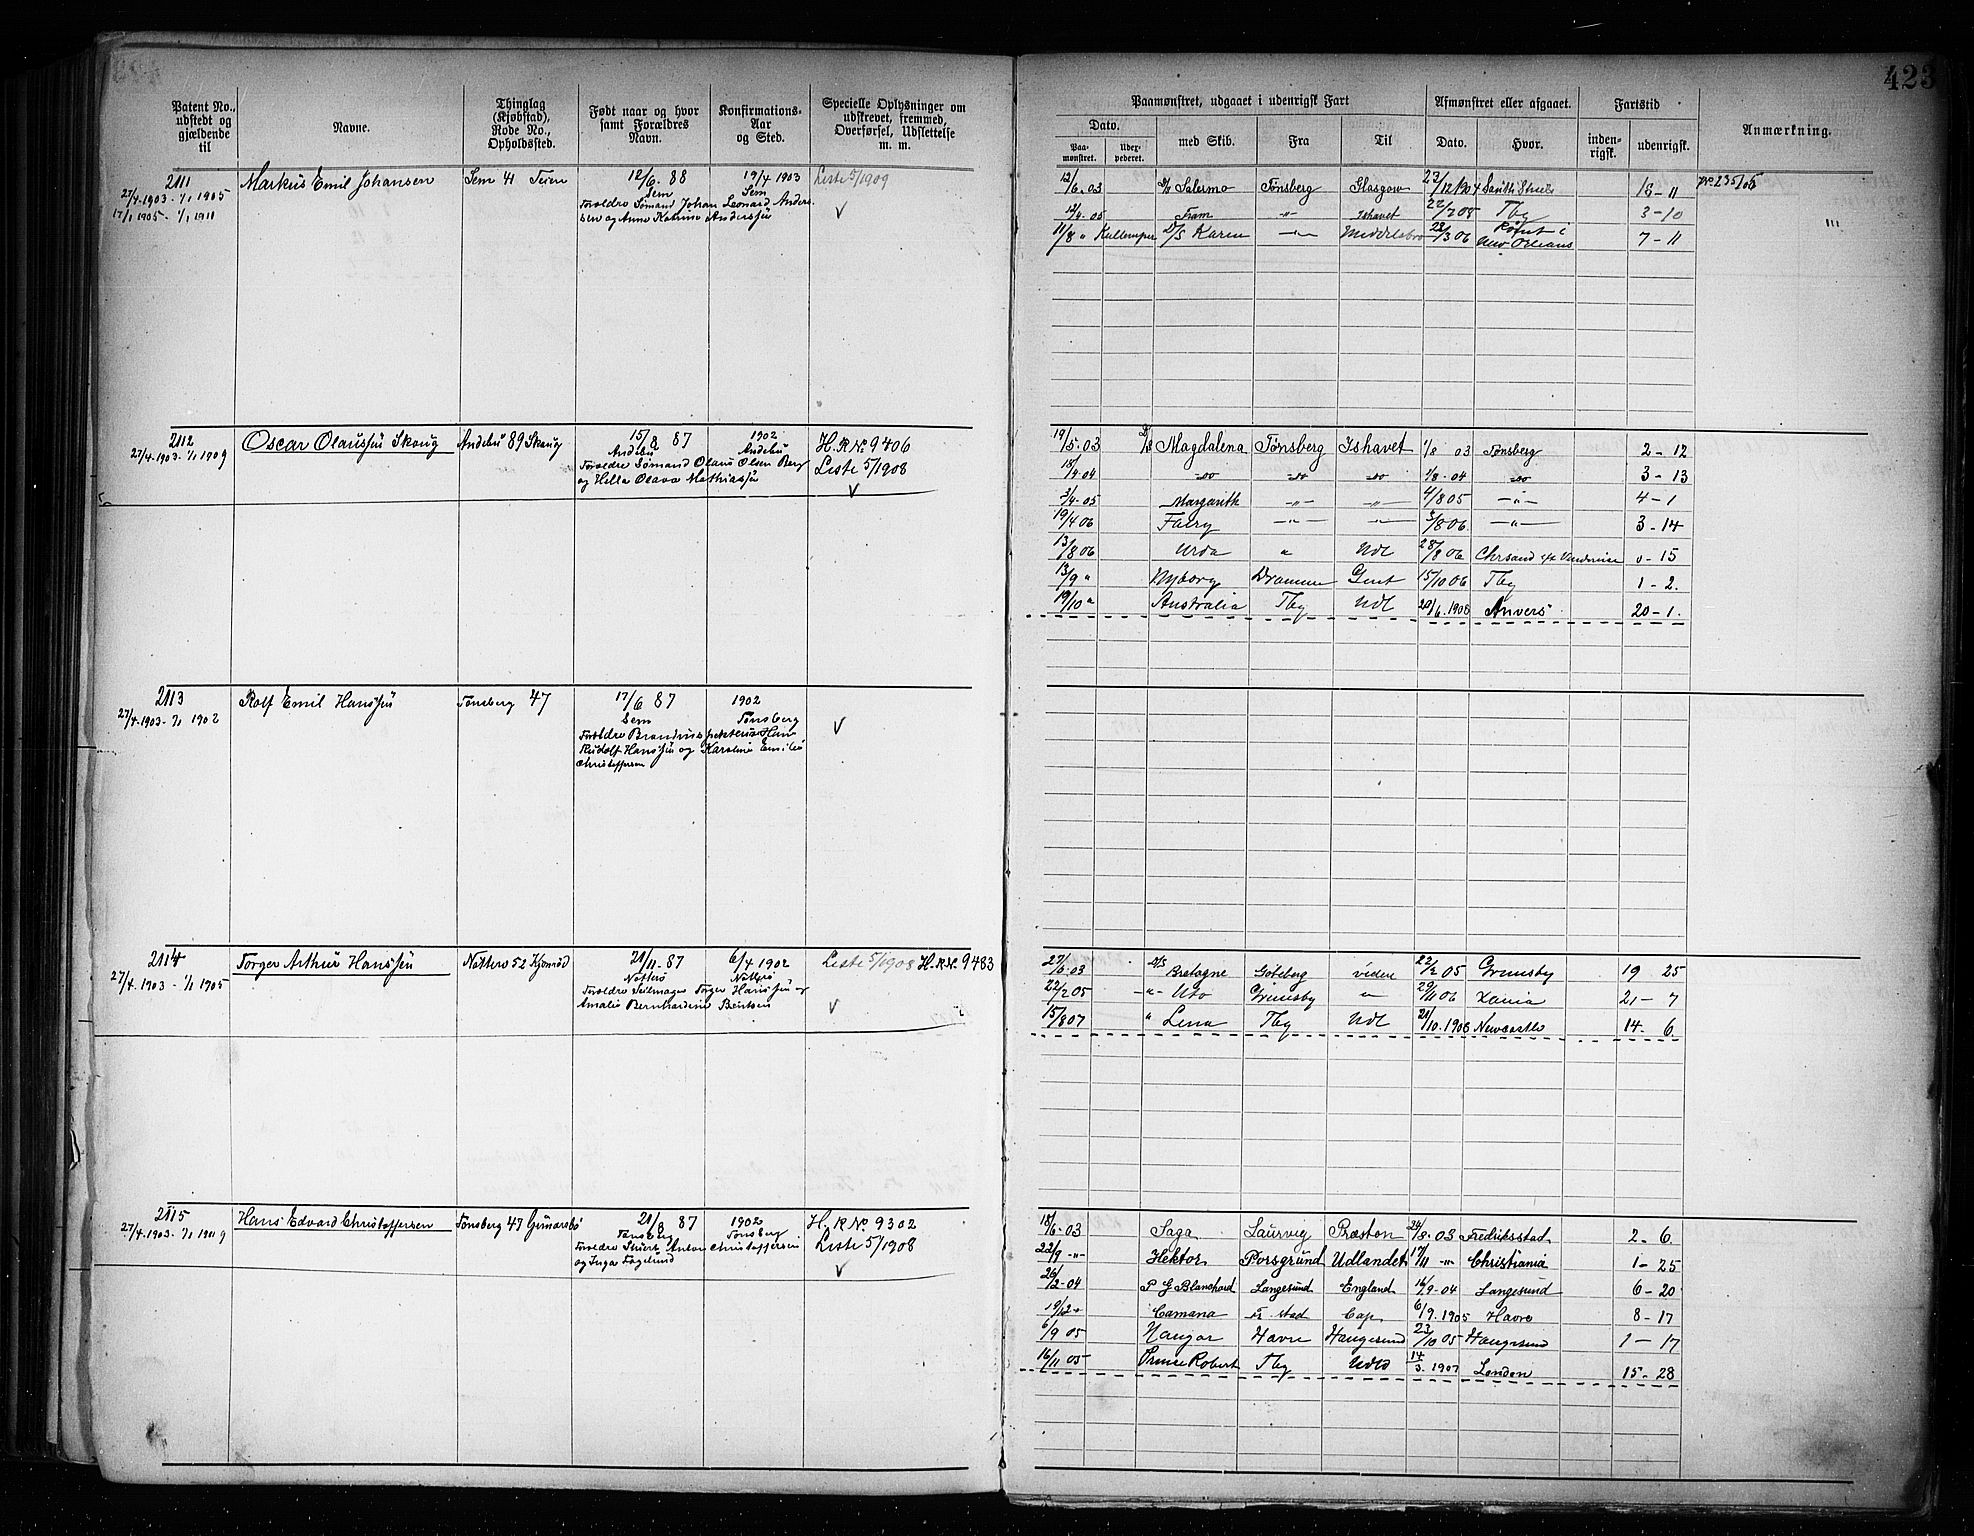 423
Patent No., udstedt og gjældende til
Navne.
Thinglag (Kjøbstad), Rode No., Opholdssted.
Født naar og hvor samt Forældres Navn.
Konfirmations-Aar og Sted.
Specielle Oplysninger om udskrevet, fremmed, Overførsel, Udslettelse m. m.
Paamønstret, udgaaet i udenrigsk Fart
Dato.
Paa-mønstret.
med Skib.
Fra
Til
Afmønstret eller afgaaet.
Dato.
Hvor.
Fartstid
inden-rigsk.
udenrigsk.
Anmærkning.
2111 Markus Emil Johansen Sem 41 Teien 12/6. 88 19/4 1903 Liste 5/1909
27/4.1903 - 1/1 1905 Sem Sem
17/1 1905 - 1/1 1911 Forældre Sømand Johan Leonard Anders-
sen og Anne Katrine Anderssen
12/6.03 S/S Salermo Tønsberg Glasgow 23/12 1904 South Shiels 18-11
12/4.05 Fram -"- Ishavet 22/7 05 Tbg 3-10
11/8 " D/S Karen -"- Middelsbro 28/3 06 Rømt i New Orleans 7-11
2112 Oscar Olaussen Skoug Andebu 89 Skoug 15/8 87 1902 H.R.No. 9406
27/4.1903 - 1/1 1909 Andebu Andebu Liste 5/1908
Forældre Sømand Olaus Olsen Berg
og Hella Olava Mathiassen
19/5.03 D/S Magdalena Tønsberg Ishavet 1/8 03 Tønsberg 2-12
18/4.04 -do- -do- -do- 1/8.04 -do- 3-13
3/4.05 Margareth -"- -"- 4/8 05 -"- 4-1
19/4 06 Fairy -"- -"- 3/8 06. -"- 3-14
13/8 06 Urda " Udl 28/8 06 Chrsand 0-15
13/9 " Nyborg Drammen Gent 15/10 06 Tbg 1-2.
19/10 " Australia Tbg Udl 20/6.1908 Anvers 20-1.
2113 Rolf Emil Hanssen Tønsberg 47 17/6 87 1902
27/4.1903 - 1/1 1902 Sem Tønsberg
Forældre Brandinspektør Hans
Rudolf Hanssen og Karoline Emilie
Christoffersen
2114 Torger Arthur Hanssen Nøtterø 52 21/11.87 6/4 1902 Liste 5/1908 H.R.No. 9483
27/4.1903 - 1/1 1905 Nøtterø Nøtterø
Forældre Seilmager Torger Hanssen og
Amalie Bernhardine Berntsen
27/6.03 S/S Bretagne Göteborg videre 22/2 05 Grimsby 19 25
22/2 05 -"- Uto Grimsby " 29/11 06 Xania 21-7
15/8 07 " Lena Tbg Udl 21/10.1908 Newcastle 14-6.
2115 Hans Edvard Christoffersen Tønsberg 47 21/8 87 1902 H.R.No. 9302
27/4.1903 - Tønsberg Tønsberg Liste 5/1908
Forældre Anton Christoffersen
og Inga
18/6.03 Saga Laurvig Præston 24/8.03 Fredriksstad 2-6.
22/9 -"- Hektor Porsgrund Udlandet 17/11 -"- Christiania 1-25
26/2-04 P G Blanchard Langesund England 16/9-04 Langesund 6-20
19/12 " Camana Fr.stad Cap. 6/9.1905 Havre 8-17
6/9 05 Havre Haugesund 23/10 05 Haugesund 1-17
16/11 05 Prince Robert Tbg Udld 14/3.1907 London 15-28